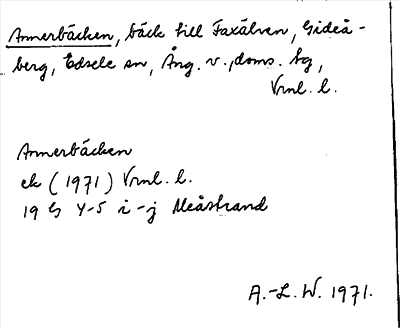 Annerbäcken, bäck till Faxälven, Gideå-
berg, Edsele sn, Ång. v., doms. tg,
Vrml. l.
Annerbäcken
ek (1971) Vrml. l.
19 G 4-5 i-j Meåstrand
A.-L. W. 1971.